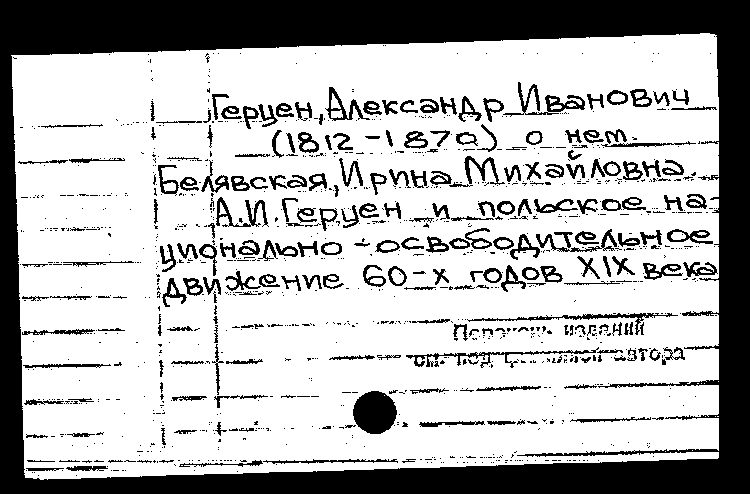 Герцен, Александр Иванович
(1812-1870) о нем.
Белявская, Ирина Михайловна.
А.И. Герцен и польское на-
ционально-освободительное
движение 60-х годов XIX века
Перечень изданий
см. под фамилией автора